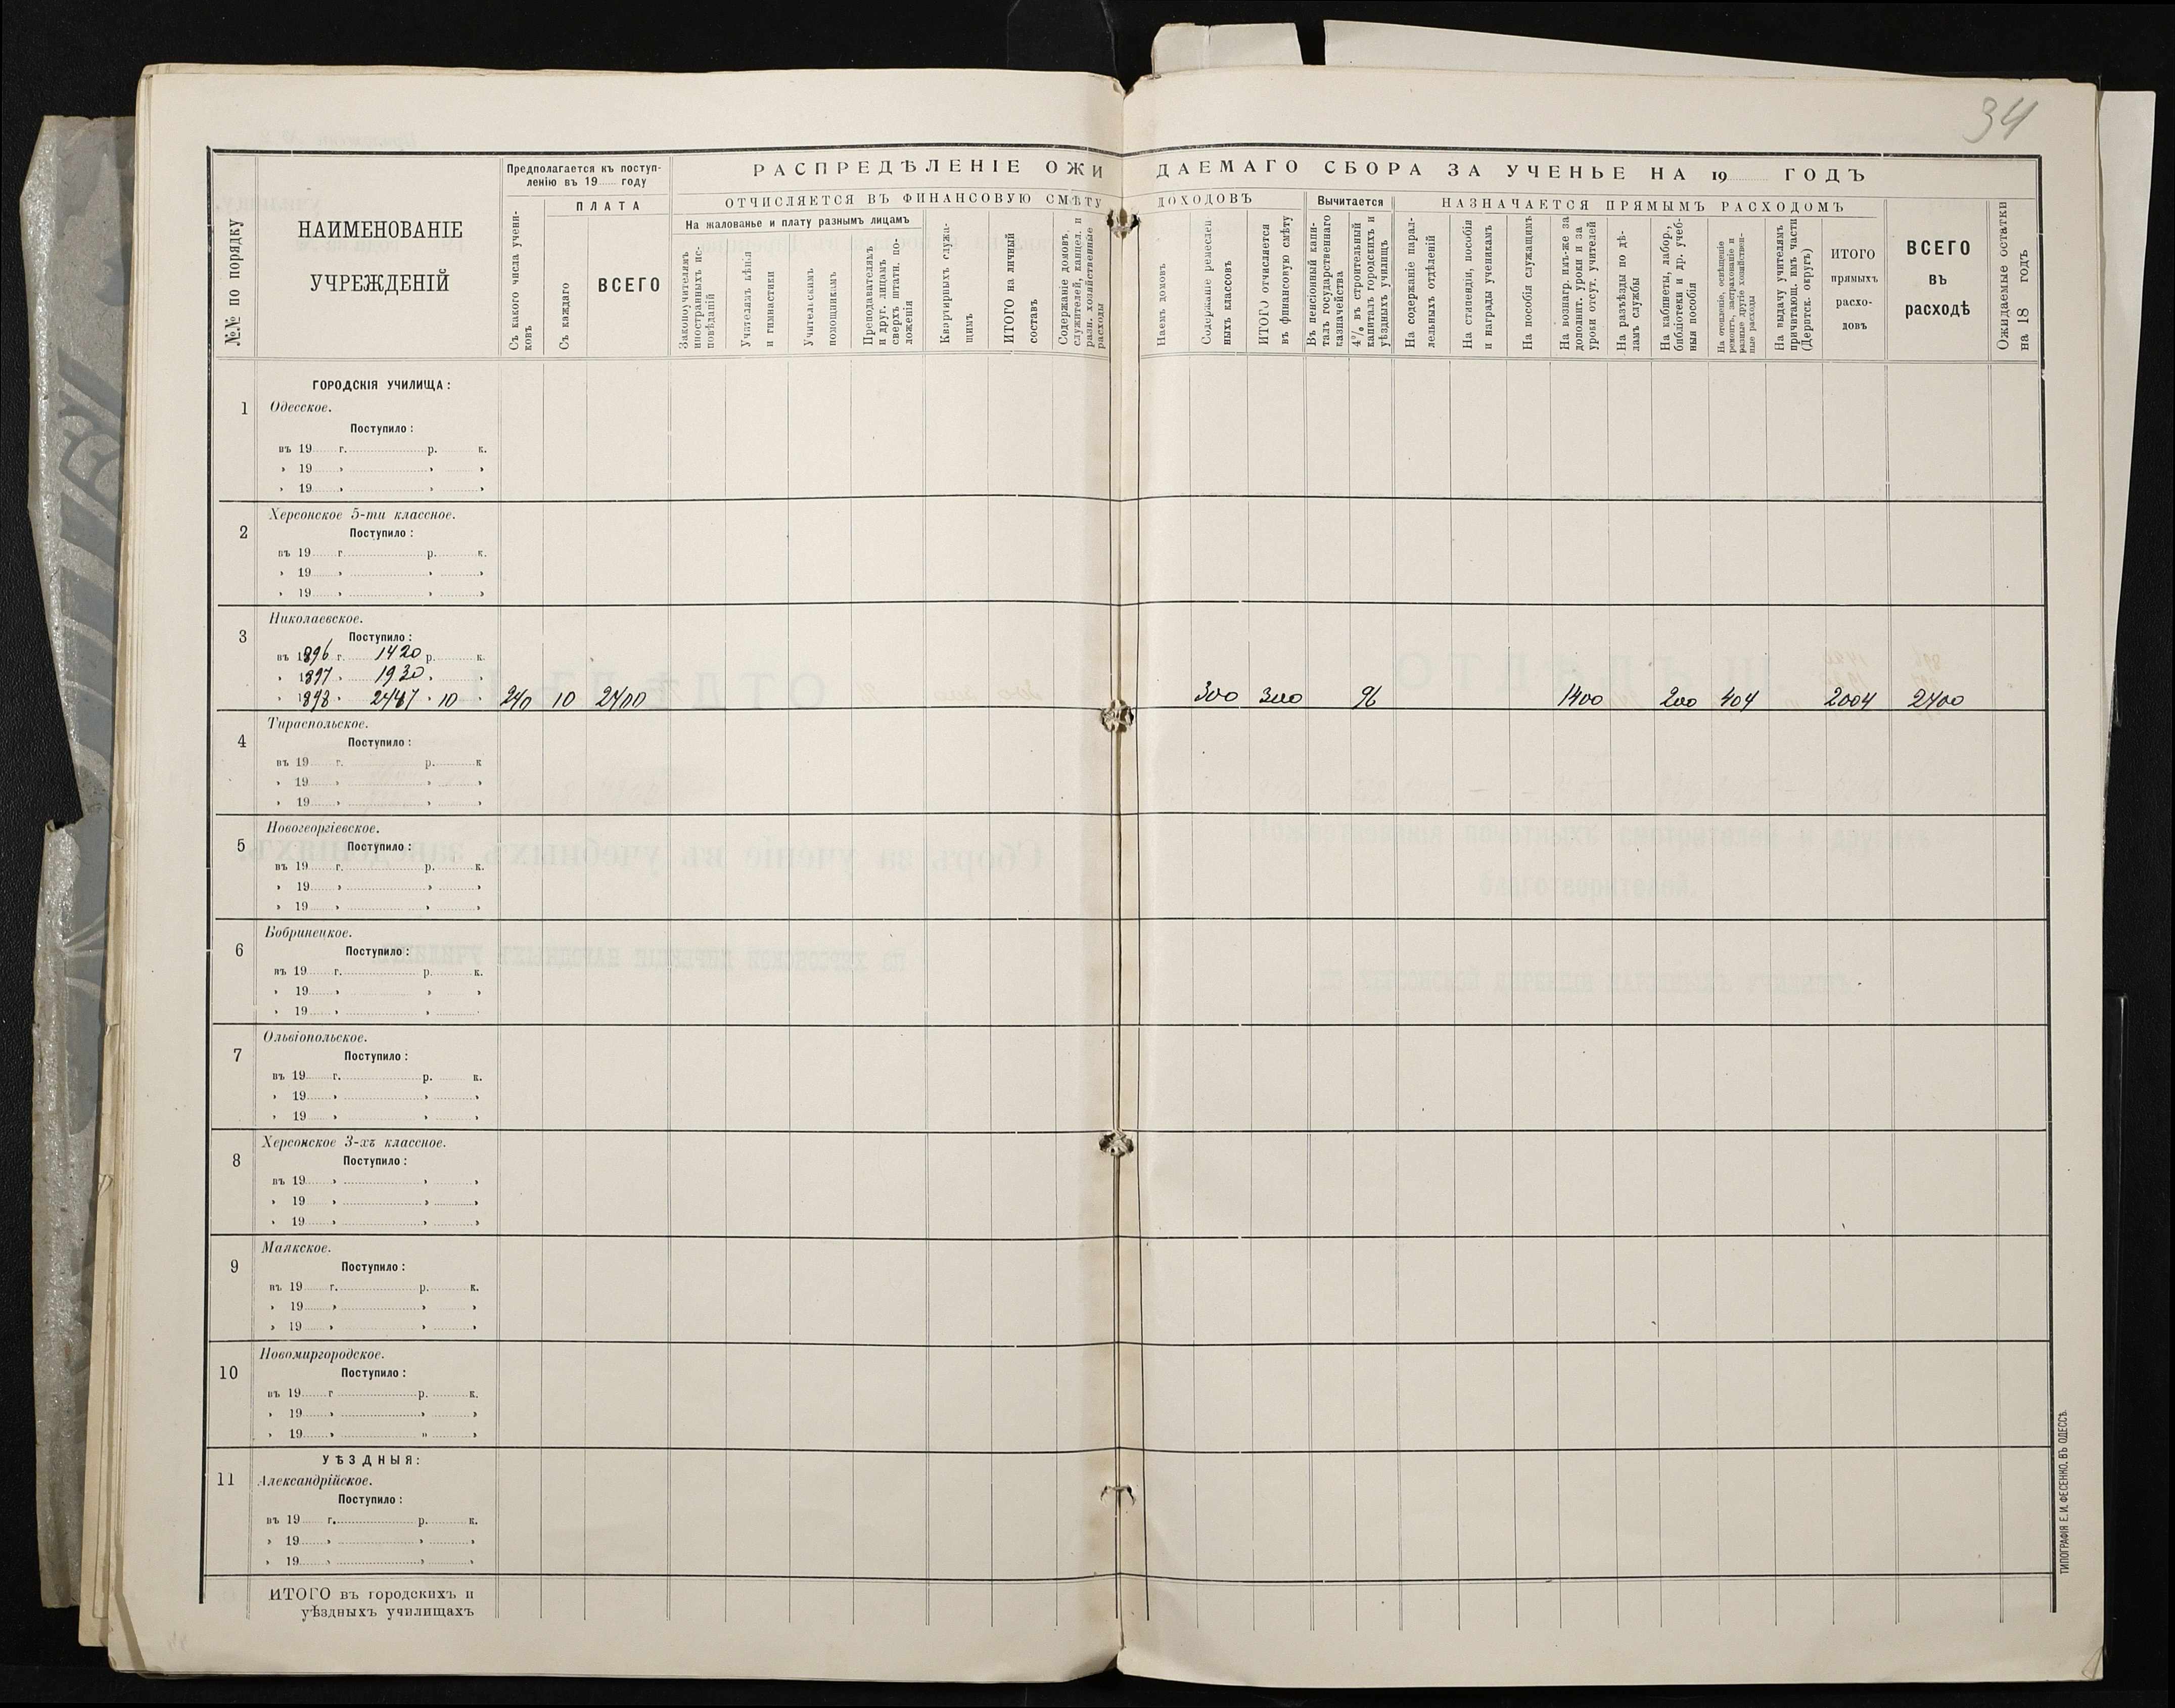 34
РАСПРЕДѢЛЕНІЕ ОЖИДАЕМАГО СБОРА ЗА УЧЕНЬЕ НА 19 ГОДЪ
№№ по порядку
НАИМЕНОВАНІЕ
УЧРЕЖДЕНІЙ
Предполагается къ поступ-
ленію въ 19 году
Съ какого числа учени-
ковъ
ПЛАТА
Съ каждаго
ВСЕГО
ОТЧИСЛЯЕТСЯ ВЪ ФИНАНСОВУЮ СМѢТУ ДОХОДОВЪ
На жалованье и плату разнымъ лицамъ
Законоучителямъ
иностранныхъ ис-
повѣданій
Учителямъ пѣнія
и гимнастики
Учительскимъ
помощникамъ
Преподавателямъ
и друг. лицамъ
сверхъ штатн. по-
ложенія
Квартирныхъ служа-
щимъ
ИТОГО на личный
составъ
Содержаніе домовъ,
служителей, канцел. и
разн. хозяйственные
расходы
Наемъ домовъ
Содержаніе ремеслен-
ныхъ классовъ
ИТОГО отчисляется
въ финансовую смѣту
Вычитается
Въ пенсіонный капи-
талъ государственнаго
казначейства
4% въ строительный
капиталъ городскихъ и
уѣздныхъ училищъ
НАЗНАЧАЕТСЯ ПРЯМЫМЪ РАСХОДОМЪ
На содержаніе парал-
лельныхъ отдѣленій
На стипендіи, пособія
и награды ученикамъ
На пособія служащимъ
На вознагр. имъ-же за
дополнит. уроки и за
уроки отсут. учителей
На разъѣзды по дѣ-
ламъ службы
На кабинеты, лабор.,
библіотеки и др. учеб-
ныя пособія
На отопленіе, освѣщеніе
ремонтъ, застрахованіе и
разные другіе хозяйствен-
ные расходы
На выдачу учителямъ
причитающ. имъ части
(Дерптск. округъ)
ИТОГО
прямыхъ
расхо-
довъ
ВСЕГО
въ
расходѣ
Ожидаемые остатки
на 18 годъ
ГОРОДСКІЯ УЧИЛИЩА:
1 Одесское.
Поступило:
въ 19 г. р. к.
» 19 » » »
» 19 » » »
2 Херсонское 5-ти классное.
Поступило:
въ 19 г р. к.
» 19 » » »
» 19 » » »
3 Николаевское.
Поступило:
въ 1896 г. 1420 р. к.
» 1897 » 1930 » »
» 1898 » 2447 » 10 » 240 10 2400 300 300 96 1400 200 404 2004 2400
4 Тираспольское.
Поступило:
въ 19 г. р. к
» 19 » » »
» 19 » » »
5 Новогеоргіевское.
Поступило:
въ 19 г. р. к.
» 19 » » »
» 19 » » »
6 Бобринецкое.
Поступило:
въ 19 г. р. к.
» 19 » » »
» 19 » »
7 Ольвіопольское.
Поступило:
въ 19 г. р. к.
» 19 » » »
» 19 » » »
8 Херсонское 3-хъ классное.
Поступило:
въ 19 » » »
» 19 » » »
» 19 » » »
9 Маякское.
Поступило:
въ 19 г. р. к.
» 19 » » »
» 19 » » »
10 Новомиргородское.
Поступило:
въ 19 г р. к.
» 19 » » »
» 19 » „ »
УѢЗДНЫЯ:
11 Александрійское.
Поступило:
въ 19 г. р. к.
» 19 » » »
» 19 » » »
ИТОГО въ городскихъ и
уѣздныхъ училищахъ
ТИПОГРАФІЯ Е. И. ФЕСЕНКО, ВЪ ОДЕССѢ.